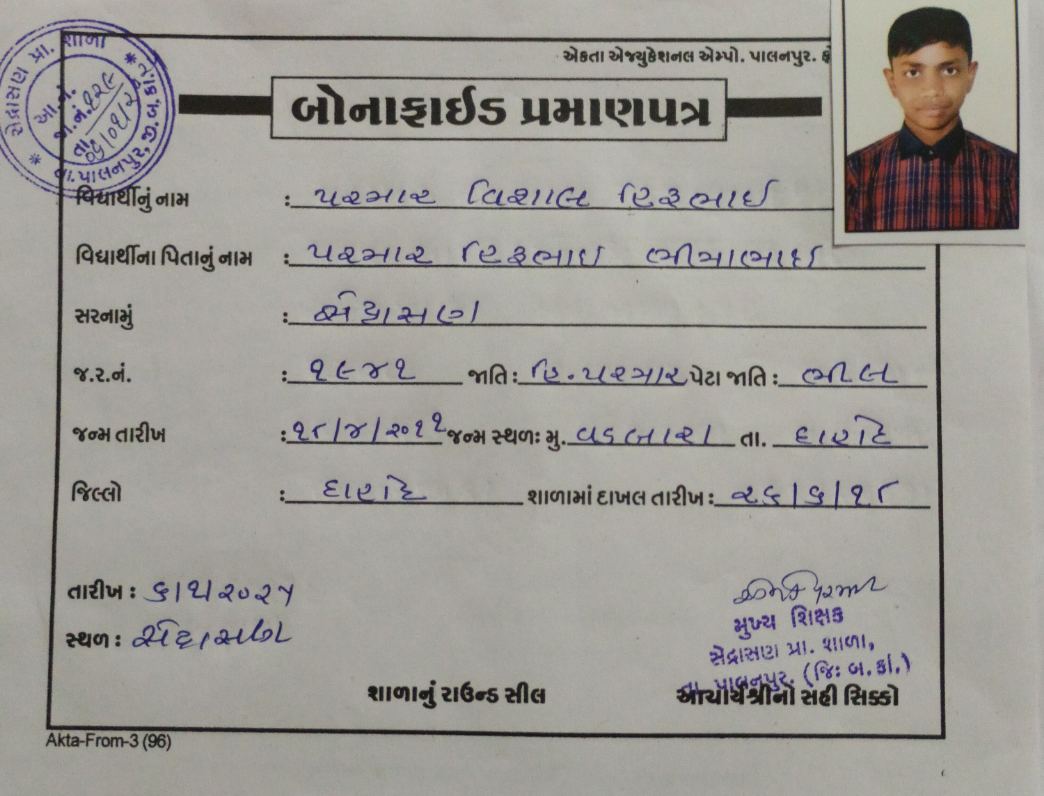 સેદ્રાસણ પ્રા. શાળા * તા.પાલનપુર, જી.બ.કાં. *
આ.નં.
જા.નં. ૨૨૯
તા.
એકતા એજ્યુકેશનલ એમ્પો. પાલનપુર.
બોનાફાઈડ પ્રમાણપત્ર
વિદ્યાર્થીનું નામ : પરમાર વિશાલ હિરૂભાઈ
વિદ્યાર્થીના પિતાનું નામ : પરમાર હિરૂભાઇ ભીમાભાઈ
સરનામું : સેદ્રાસણ
જ.ર.નં. : ૧૯૪૧ જાતિ : હિ.પરમાર પેટા જાતિ : ભીલ
જન્મ તારીખ : ૧૮/૪/૨૦૧૧ જન્મ સ્થળઃ મુ. વડબારા તા.
જિલ્લો : શાળામાં દાખલ તારીખ : ૨૬/૬/૧૮
તારીખ : ૬/૧/૨૦૨૫
સ્થળ : સેદ્રાસણ
મુખ્ય શિક્ષક
સેદ્રાસણ પ્રા. શાળા,
તા. પાલનપુર. (જિઃ બ.કાં.)
શાળાનું રાઉન્ડ સીલ આચાર્યશ્રીનો સહી સિક્કો
Akta-From-3 (96)